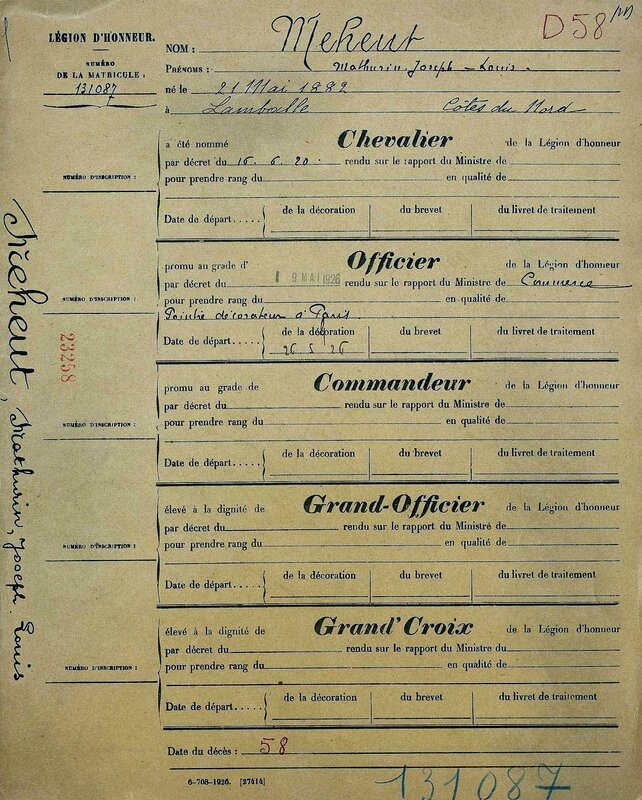 LÉGION D'HONNEUR.
NUMÉRO
DE LA MATRICULE :
131087
D58
NOM : Meheut
PRÉNOMS : Mathurin Joseph - Louis.
né le 21 Mai 1882
à Lamballe Côtes du Nord
a été nommé Chevalier de la Légion d'honneur
par décret du 16. 6. 20. rendu sur le rapport du Ministre de
NUMÉRO D'INSCRIPTION :
pour prendre rang du en qualité de
Date de départ..... de la décoration du brevet du livret de traitement
promu au grade d' Officier de la Légion d'honneur
par décret du 19 MAI 1926 rendu sur le rapport du Ministre de Commerce
NUMÉRO D'INSCRIPTION :
pour prendre rang du en qualité de
Peintre décorateur à Paris.
Date de départ..... de la décoration du brevet du livret de traitement
26 5 26
23258
promu au grade de Commandeur de la Légion d'honneur
par décret du rendu sur le rapport du Ministre de
NUMÉRO D'INSCRIPTION :
pour prendre rang du en qualité de
Date de départ..... de la décoration du brevet du livret de traitement
élevé à la dignité de Grand-Officier de la Légion d'honneur
par décret du rendu sur le rapport du Ministre de
NUMÉRO D'INSCRIPTION :
pour prendre rang du en qualité de
Date de départ..... de la décoration du brevet du livret de traitement
élevé à la dignité de Grand'Croix de la Légion d'honneur
par décret du rendu sur le rapport du Ministre du
NUMÉRO D'INSCRIPTION :
pour prendre rang du en qualité de
Date de départ..... de la décoration du brevet du livret de traitement
Date du décès : 58
6-708-1926. [27414]
131087
Meheut, Mathurin, Joseph Louis